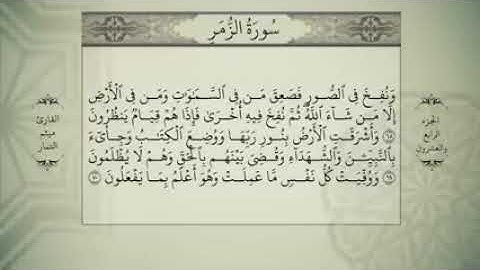 سُورَةُ الزُّمَرِ
وَنُفِخَ فِى الصُّورِ فَصَعِقَ مَن فِى السَّمَٰوَٰتِ وَمَن فِى الْأَرْضِ
إِلَّا مَن شَآءَ اللَّهُ ثُمَّ نُفِخَ فِيهِ أُخْرَىٰ فَإِذَا هُمْ قِيَامٌ يَنظُرُونَ
٦٨ وَأَشْرَقَتِ الْأَرْضُ بِنُورِ رَبِّهَا وَوُضِعَ الْكِتَٰبُ وَجِاىٓءَ
بِالنَّبِيِّۦنَ وَالشُّهَدَآءِ وَقُضِىَ بَيْنَهُم بِالْحَقِّ وَهُمْ لَا يُظْلَمُونَ
٦٩ وَوُفِّيَتْ كُلُّ نَفْسٍ مَّا عَمِلَتْ وَهُوَ أَعْلَمُ بِمَا يَفْعَلُونَ ٧٠
الجزء
الرابع
والعشرون
القارئ
ميثم
التمار